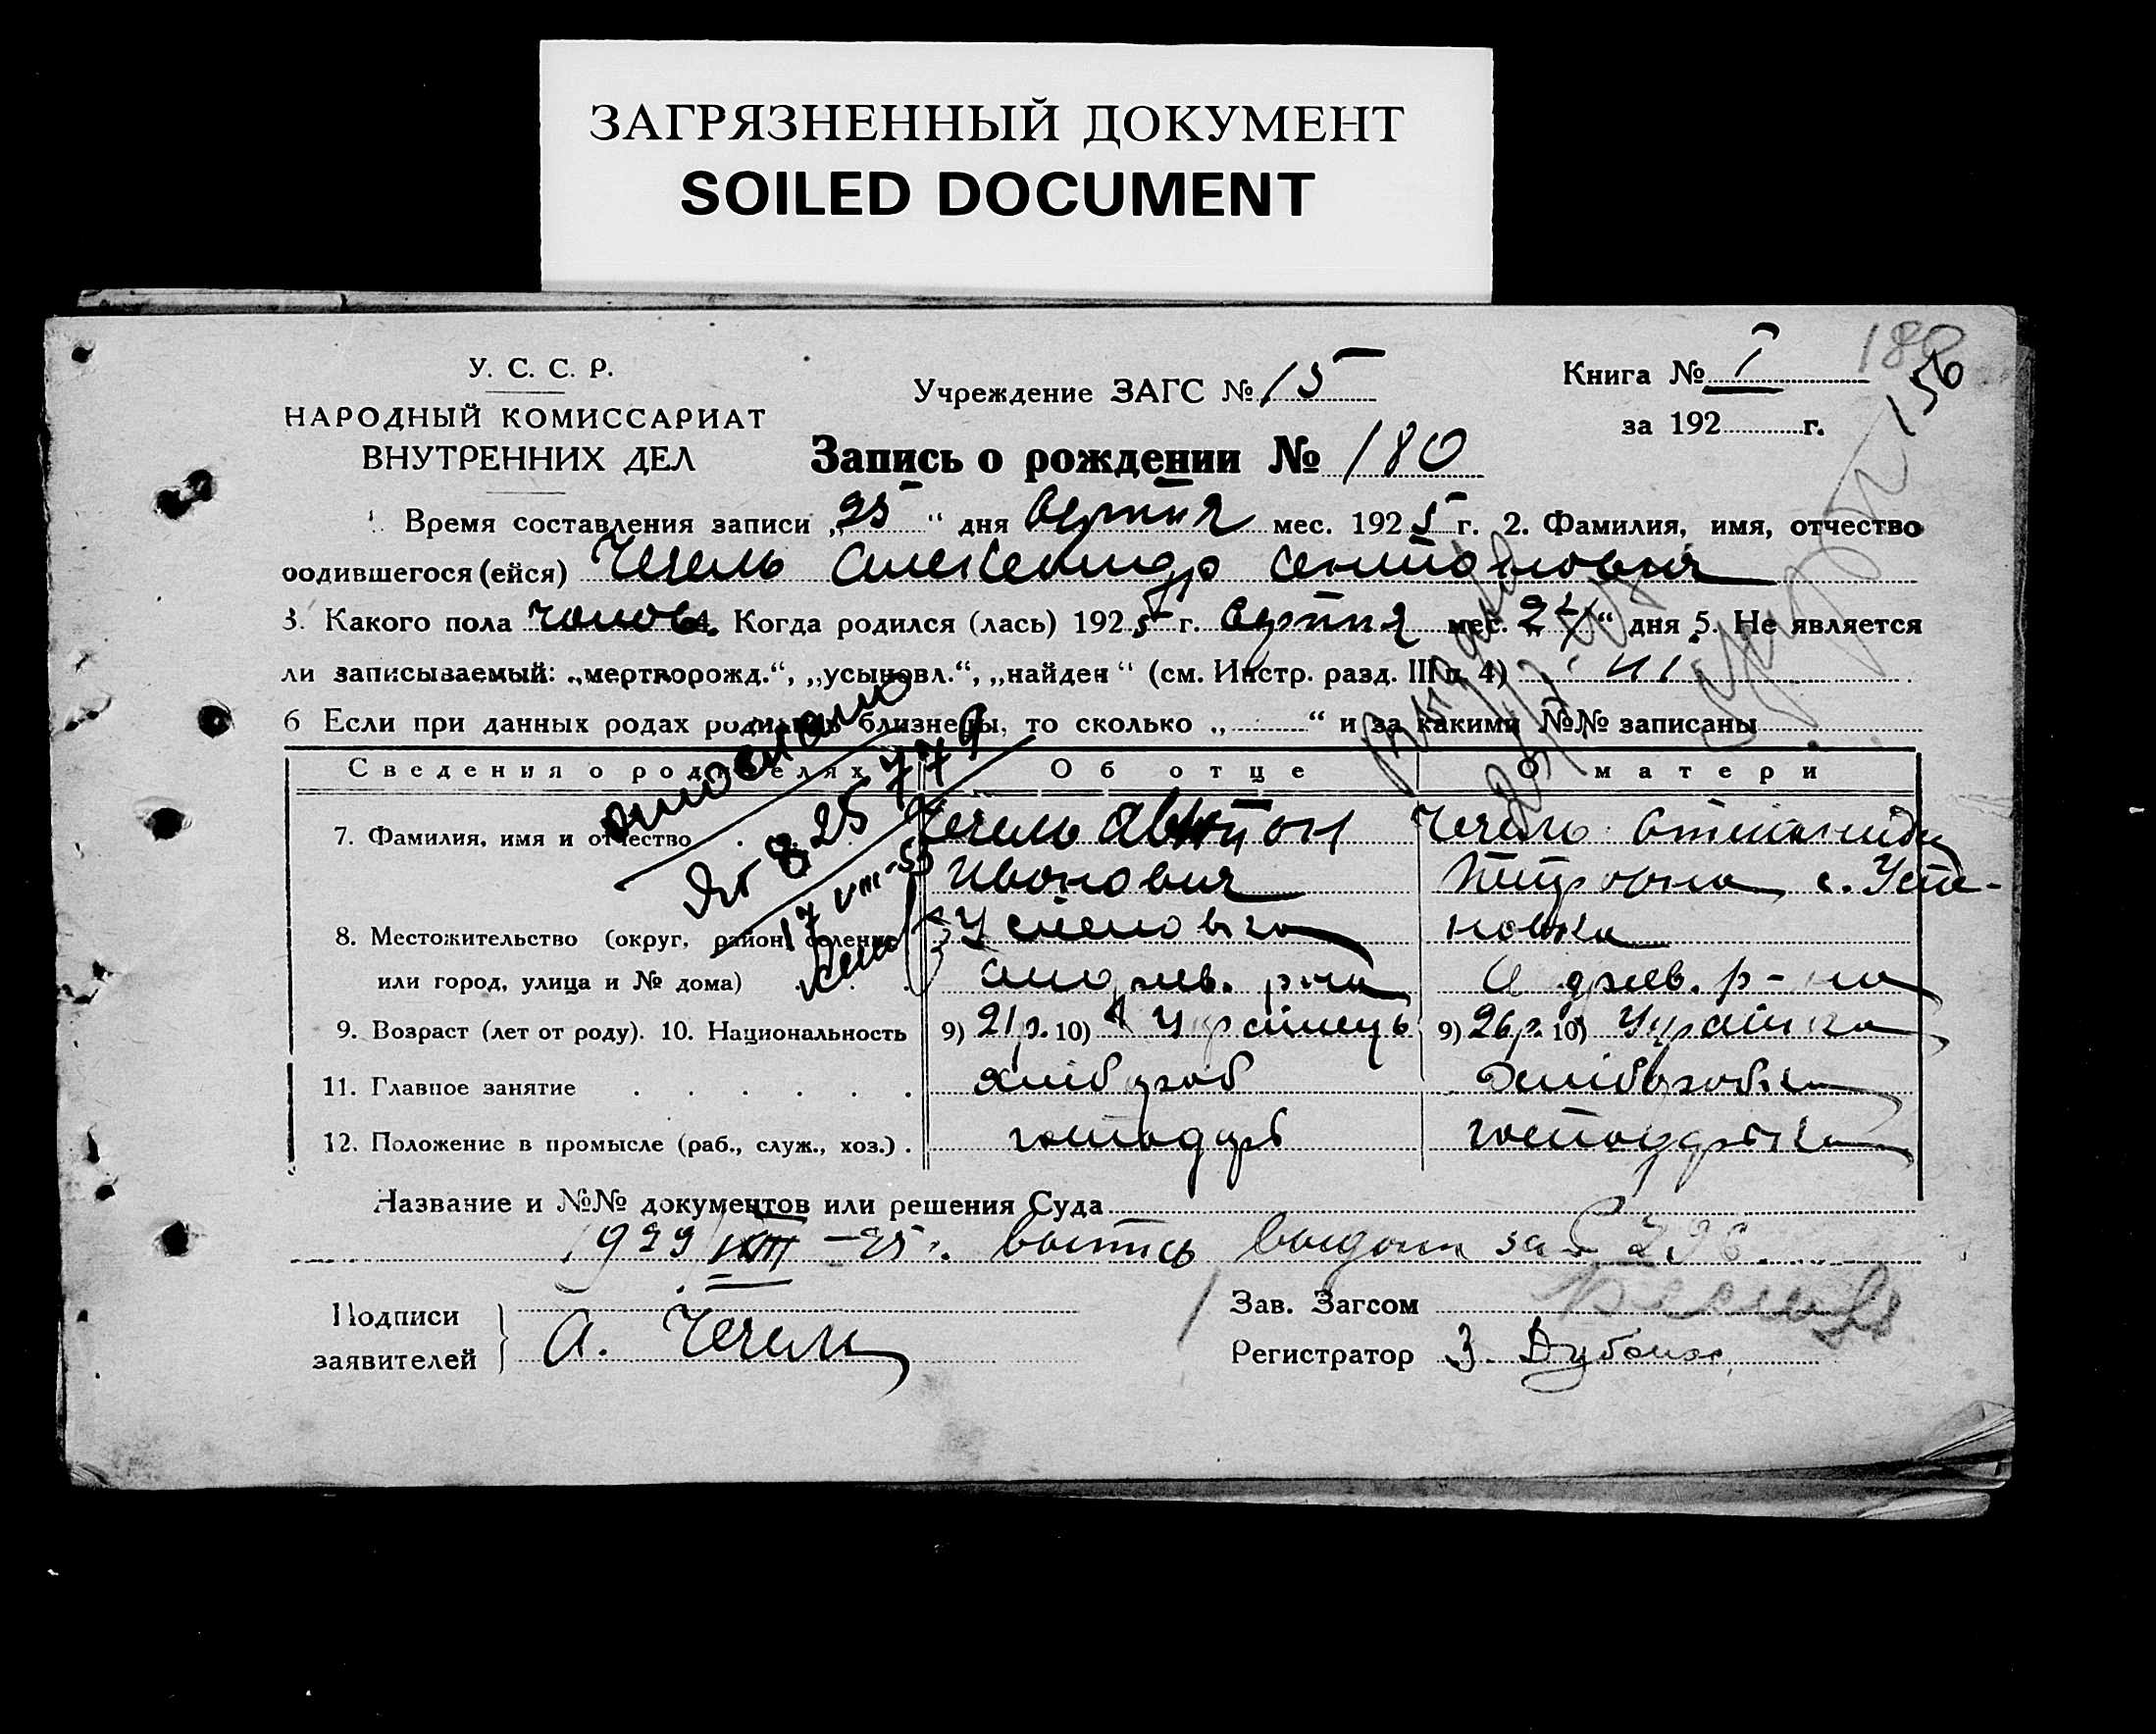 ЗАГРЯЗНЕННЫЙ ДОКУМЕНТ
SOILED DOCUMENT
У. С. С. Р.
НАРОДНЫЙ КОМИССАРИАТ
ВНУТРЕННИХ ДЕЛ
Учреждение ЗАГС № 15
Книга № I
180
156
за 192 г.
Запись о рождении № 180
Время составления записи „25“ дня серпня мес. 1925 г. 2. Фамилия, имя, отчество
родившегося (ейся) Чечель Александр
3. Какого пола чолов. Когда родился (лась) 1925 г. серпня мес. „24“ дня 5. Не является
ли записываемый: „мертворожд.“, „усыновл.“, „найден“ (см. Инстр. разд. III п. 4) ні
6 Если при данных родах родились близнецы, то сколько „ “ и за какими №№ записаны
Сведения о родителях Об отце О матери
7. Фамилия, имя и отчество Чечель Чечель Степанида
Иванович Петровна с. Усте-
8. Местожительство (округ, район, селение Устеновка новка
или город, улица и № дома) Андреев. р-на Андреев. р-на
9. Возраст (лет от роду). 10. Национальность 9) 21 р. 10) Українець 9) 26 р. 10) Українка
11. Главное занятие хлібороб хліборобка
12. Положение в промысле (раб., служ., хоз.) господарь господарька
Название и №№ документов или решения Суда
1929 VIII – 25 г. выпись выдана за №
Подписи
заявителей А. Чечель
Зав. Загсом
Регистратор З. Дубова